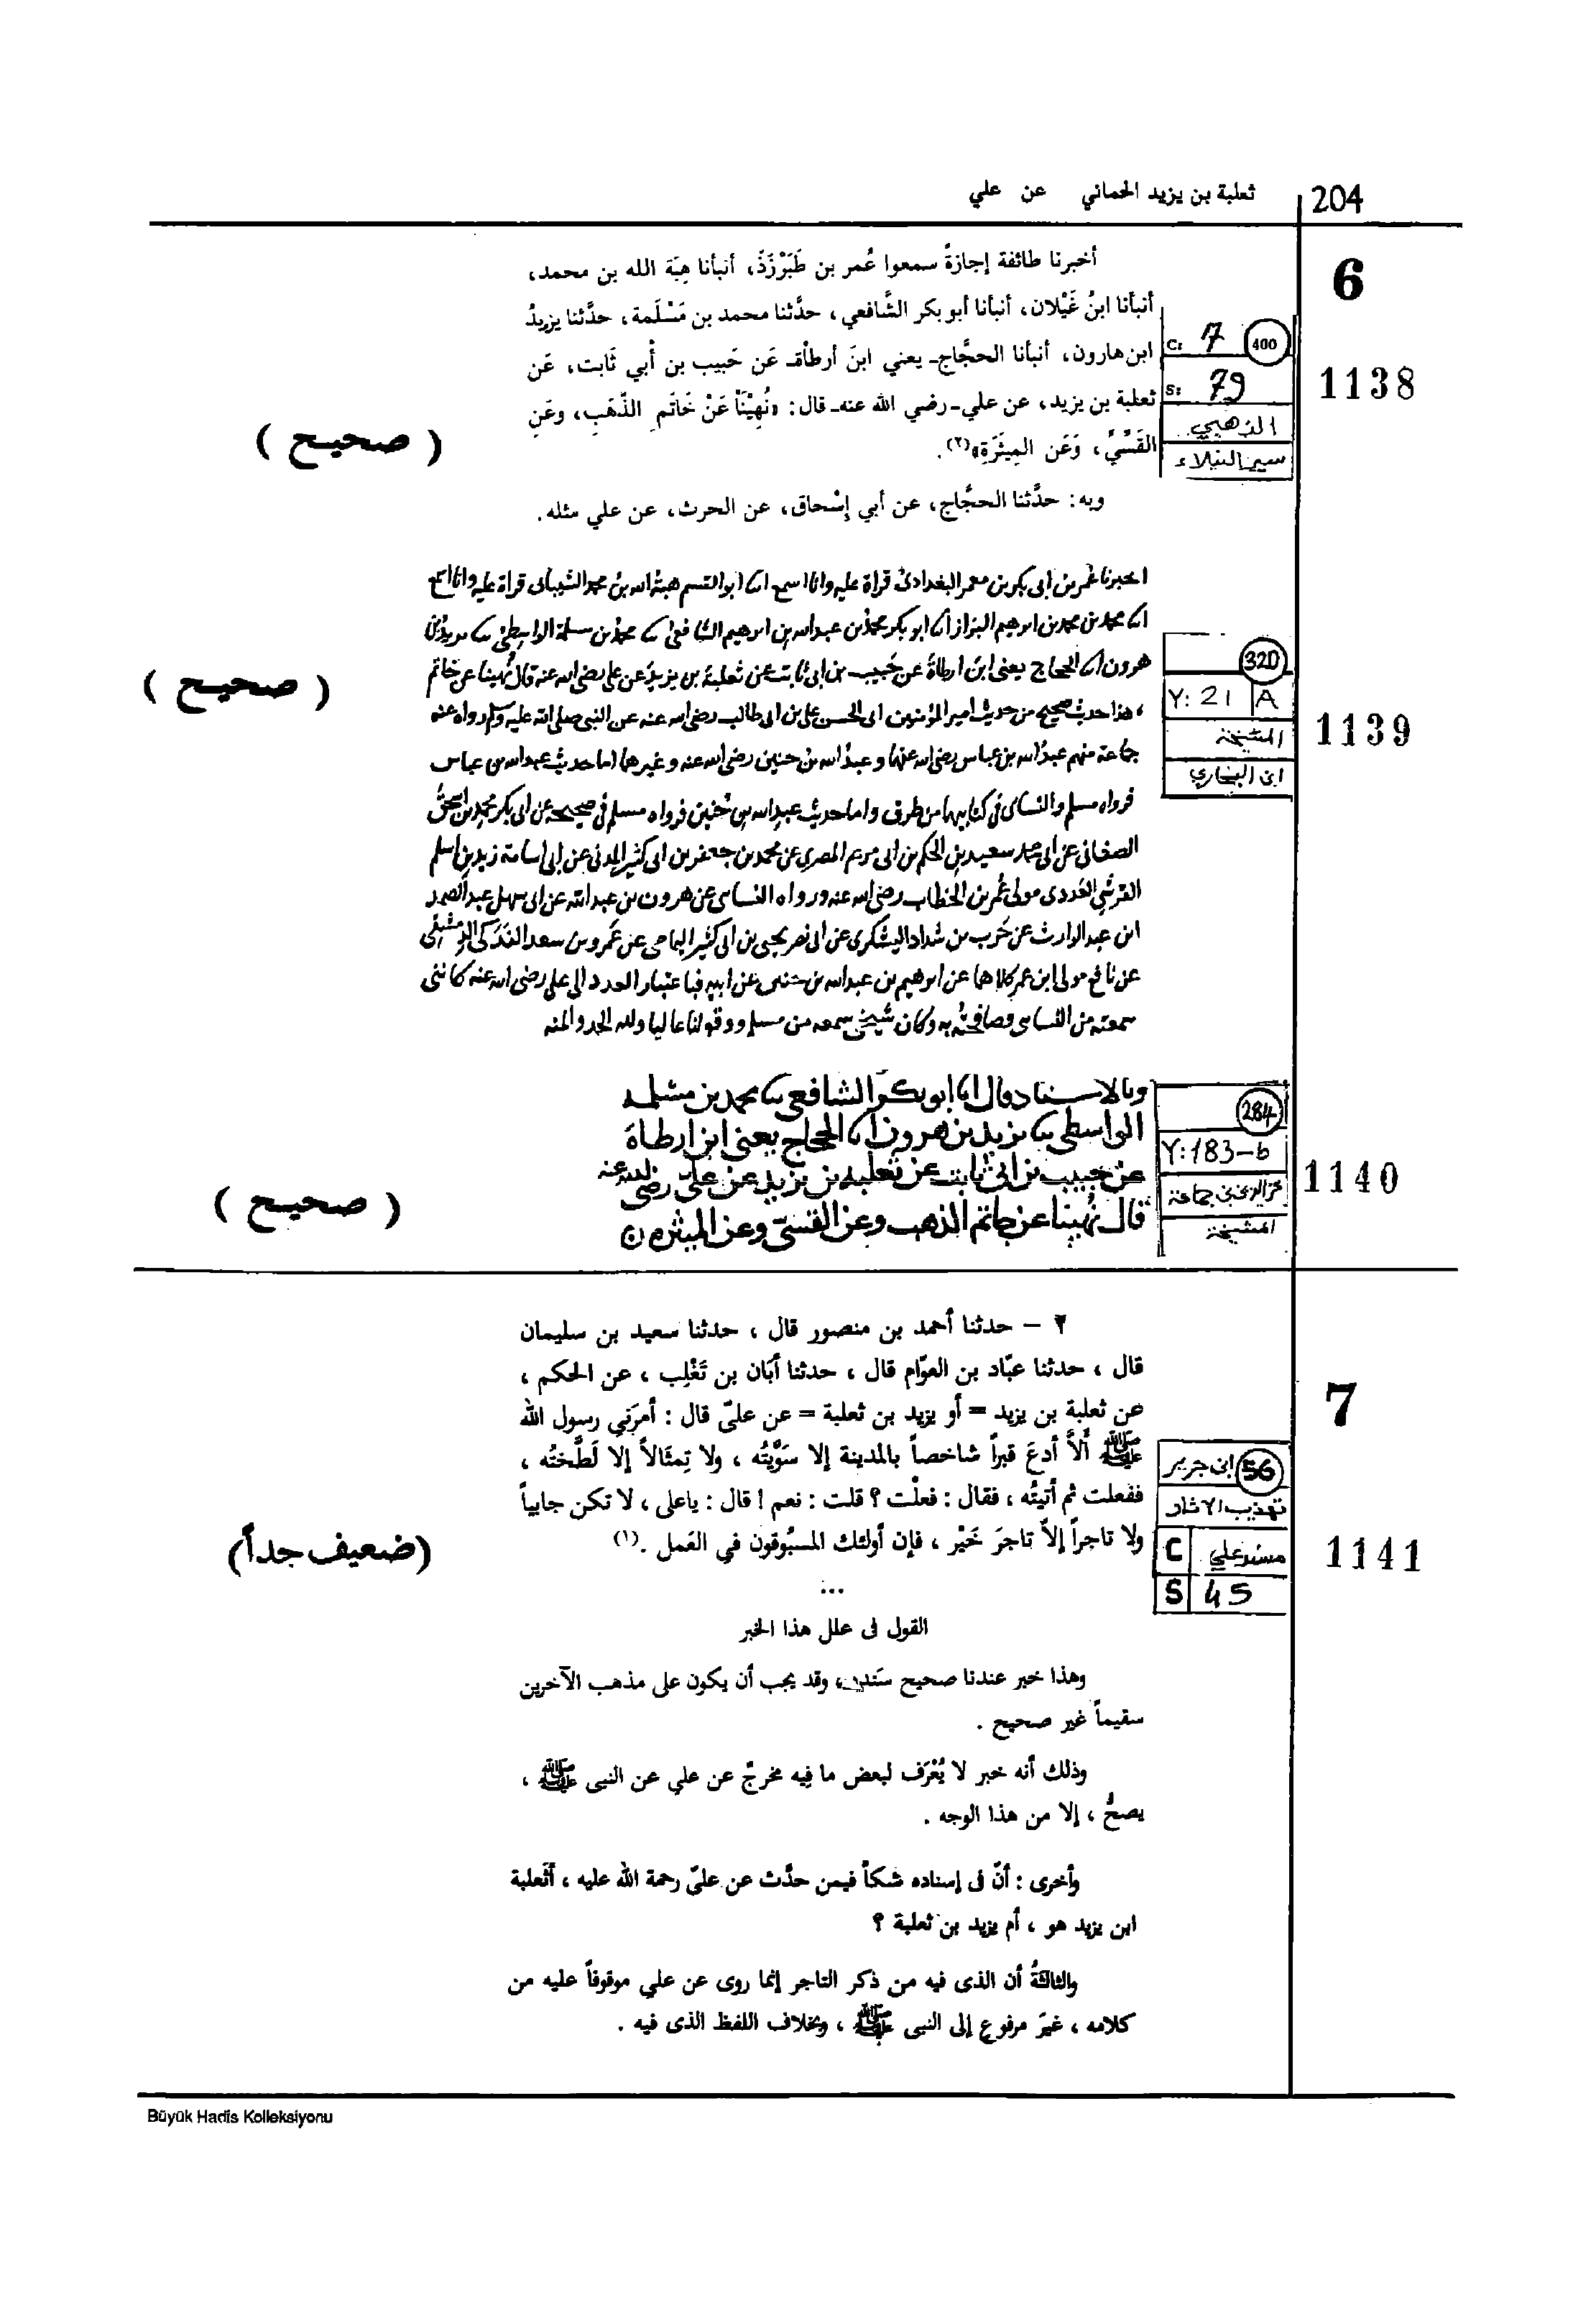 204
ثعلبة بن يزيد الحماني عن علي
6
أخبرنا طائفة إجازةً سمعوا عُمر بن طَبَرْزَذَ، أنبأنا هِبَة الله بن محمد،
أنبأنا ابنُ غَيْلان، أنبأنا أبو بكر الشَّافعي، حدَّثنا محمد بن مَسْلَمة، حدَّثنا يزيدُ
ابن هارون، أنبأنا الحجَّاج- يعني ابنَ أرطأة- عَن حَبيب بن أبي ثَابت، عَن
ثعلبة بن يزيد، عن علي- رضي الله عنه- قال: «نُهِيْنَا عَنْ خَاتَمِ الذَّهَبِ، وعَنِ
القَسِّيِّ، وَعَن المِيثَرَةِ»(٢).
وبه: حدَّثنا الحجَّاج، عن أبي إسْحاق، عن الحرث، عن علي مثله.
400
C: 7
S: 79
الذهبي
سير النبلاء
1138
( صحيح )
اخبرنا عمر بن ابى بكر بن معمر البغدادى قراة عليه وانا اسمع انا ابو القسم هبة الله بن محمد الشيبانى قراة عليه وانا اسمع
انا محمد بن محمد بن ابرهيم البزاز انا ابو بكر محمد بن عبد الله بن ابرهيم الشافعى ثنا محمد بن مسلمة الواسطى ثنا يزيد بن
هرون انا الحجاج يعنى ابن ارطاة عن حبيب بن ابى ثابت عن ثعلبة بن يزيد عن على رضى الله عنه قال نُهينا عن خاتم
، هذا حديث صحيح من حديث امير المؤمنين ابى الحسن على بن ابى طالب رضى الله عنه عن النبى صلى الله عليه وسلم رواه عنه
جماعة منهم عبد الله بن عباس رضى الله عنهما وعبد الله بن حنين رضى الله عنه وغيرهما اما حديث عبد الله بن عباس
فرواه مسلم والنساى فى كتابيهما من طرق واما حديث عبد الله بن حنين فرواه مسلم فى صحيحه عن ابى بكر محمد بن اسحق
الصغانى عن ابى محمد سعيد بن الحكم بن ابى مريم المصرى عن محمد بن جعفر بن ابى كثير المدنى عن ابى اسامة زيد بن اسلم
القرشى العدوى مولى عمر بن الخطاب رضى الله عنه ورواه النساى عن هرون بن عبد الله عن ابى سهل عبد الصمد
ابن عبد الوارث عن حَرب بن شداد اليشكرى عن ابى نصر يحيى بن ابى كثير اليمامى عن عمرو بن سعد الفدكى الدمشقى
عن نافع مولى ابن عمر كلاهما عن ابرهيم بن عبد الله بن حنين عن ابيه فباعتبار العدد الى على رضى الله عنه كاننى
سمعته من النساى وصافحته به وكان شيخى سمعه من مسلم ووقع لنا عاليا ولله الحمد والمنه
320
Y: 21 A
المشيخة
ابن البخاري
1139
( صحيح )
وبالاسناد قال انا ابو بكر الشافعى ثنا محمد بن مسلمه
الواسطى ثنا يزيد بن هرون انا الحجاج يعنى ابن ارطاة
عن حبيب بن ابى ثابت عن ثعلبه بن يزيد عن على رضى الله عنه
قال نُهينا عن خاتم الذهب وعن القسىّ وعن الميثره
284
Y: 183-b
عز الدين بن جماعة
المشيخة
1140
( صحيح )
7
٢ - حدثنا أحمد بن منصور قال ، حدثنا سعيد بن سليمان
قال ، حدثنا عبّاد بن العوّام قال ، حدثنا أبَان بن تَغْلِب ، عن الحكم ،
عن ثعلبة بن يزيد = أو يزيد بن ثعلبة = عن عليّ قال : أمرَني رسول الله
ﷺ ألاَّ أدعَ قبراً شاخصاً بالمدينة إلا سَوَّيْتُه ، ولا تِمثَالاً إلا لَطَّختُه ،
ففعلت ثم أتيتُه ، فقال : فعلْت ؟ قلت : نعم ! قال : ياعلى ، لا تكن جابياً
ولا تاجراً إلاَّ تاجرَ خَيْر ، فإن أولئك المسبُوقون في العَمل .(١)
...
ابن جرير 56
تهذيب الآثار
مسند علي C
S 45
1141
(ضعيف جداً)
القول فى علل هذا الخبر
وهذا خبر عندنا صحيح سَنَده، وقد يجب أن يكون على مذهب الآخرين
سقيماً غير صحيح .
وذلك أنه خبر لا يُعْرَف لبعض ما فيه مخرجٌ عن علي عن النبى ﷺ ،
يصحُّ ، إلا من هذا الوجه .
وأخرى : أنّ فى إسناده شكاً فيمن حدَّث عن عليّ رحمة الله عليه ، أثعلبة
ابن يزيد هو ، أم يزيد بن ثعلبة ؟
والثالثةُ أن الذى فيه من ذكر التاجر إنما روى عن علي موقوفاً عليه من
كلامه ، غيرَ مرفوع إلى النبى ﷺ ، وبخلاف اللفظ الذى فيه .
Büyük Hadîs Kolleksiyonu